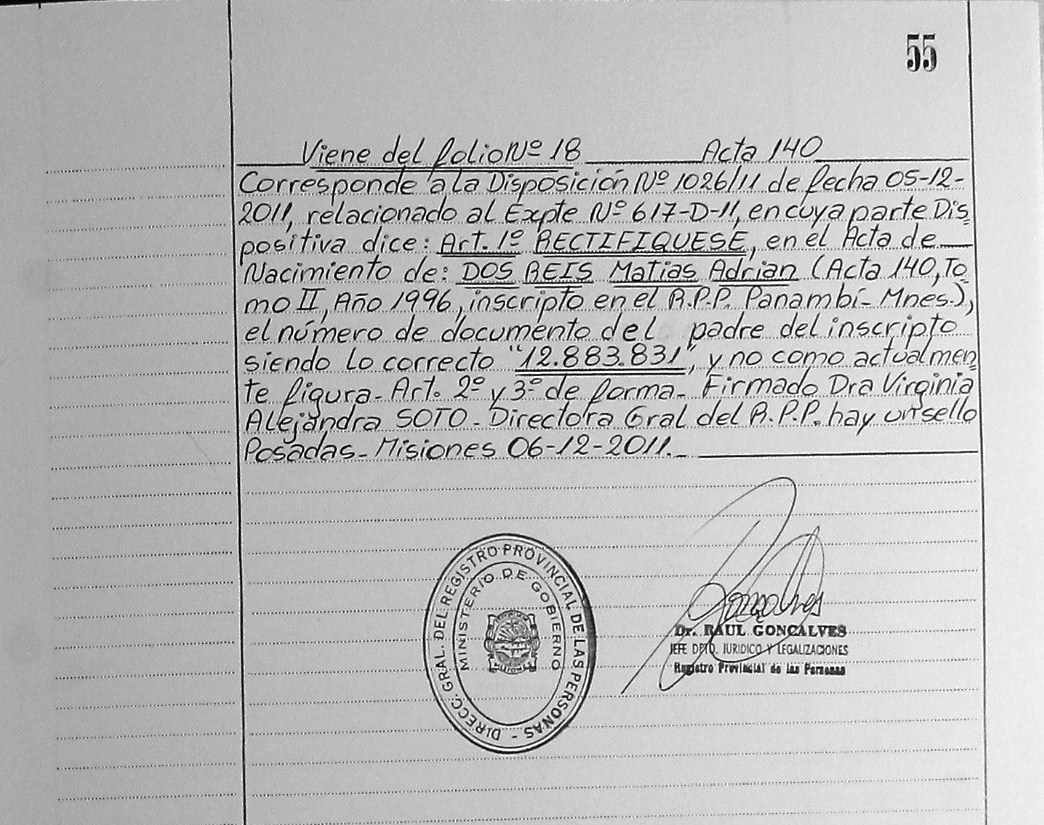 55
Viene del folio Nº 18 Acta 140
Corresponde a la Disposición Nº 1026/11 de fecha 05-12-
2011, relacionado al Expte Nº 617-D-11, en cuya parte Dis
positiva dice: Art. 1º RECTIFIQUESE, en el Acta de
Nacimiento de: DOS REIS Matias Adrian (Acta 140, To
mo II, Año 1996, inscripto en el R.P.P. Panambí- Mnes.),
el número de documento del padre del inscripto
siendo lo correcto "12.883.831", y no como actualmen
te figura. Art. 2º y 3º de forma. Firmado Dra Virginia
Alejandra SOTO. Directora Gral del R.P.P. hay un sello
Posadas- Misiones 06-12-2011.
DIRECC. GRAL. DEL REGISTRO PROVINCIAL DE LAS PERSONAS -
MINISTERIO DE GOBIERNO
Gonçalves
Dr. RAUL GONCALVES
JEFE DPTO. JURIDICO Y LEGALIZACIONES
Registro Provincial de las Personas